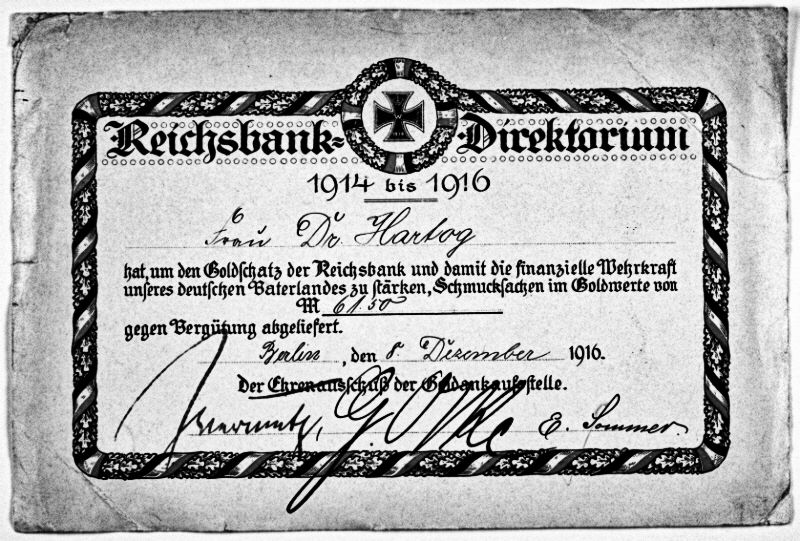 Reichsbank-Direktorium
1914 bis 1916
Frau Dr. Hartog
hat, um den Goldschatz der Reichsbank und damit die finanzielle Wehrkraft
unseres deutschen Vaterlandes zu stärken, Schmucksachen im Goldwerte von
M 61.50
gegen Vergütung abgeliefert.
Berlin, den 8. Dezember 1916.
Der Ehrenausschuß der Goldankaufsstelle.
E. Sommer.